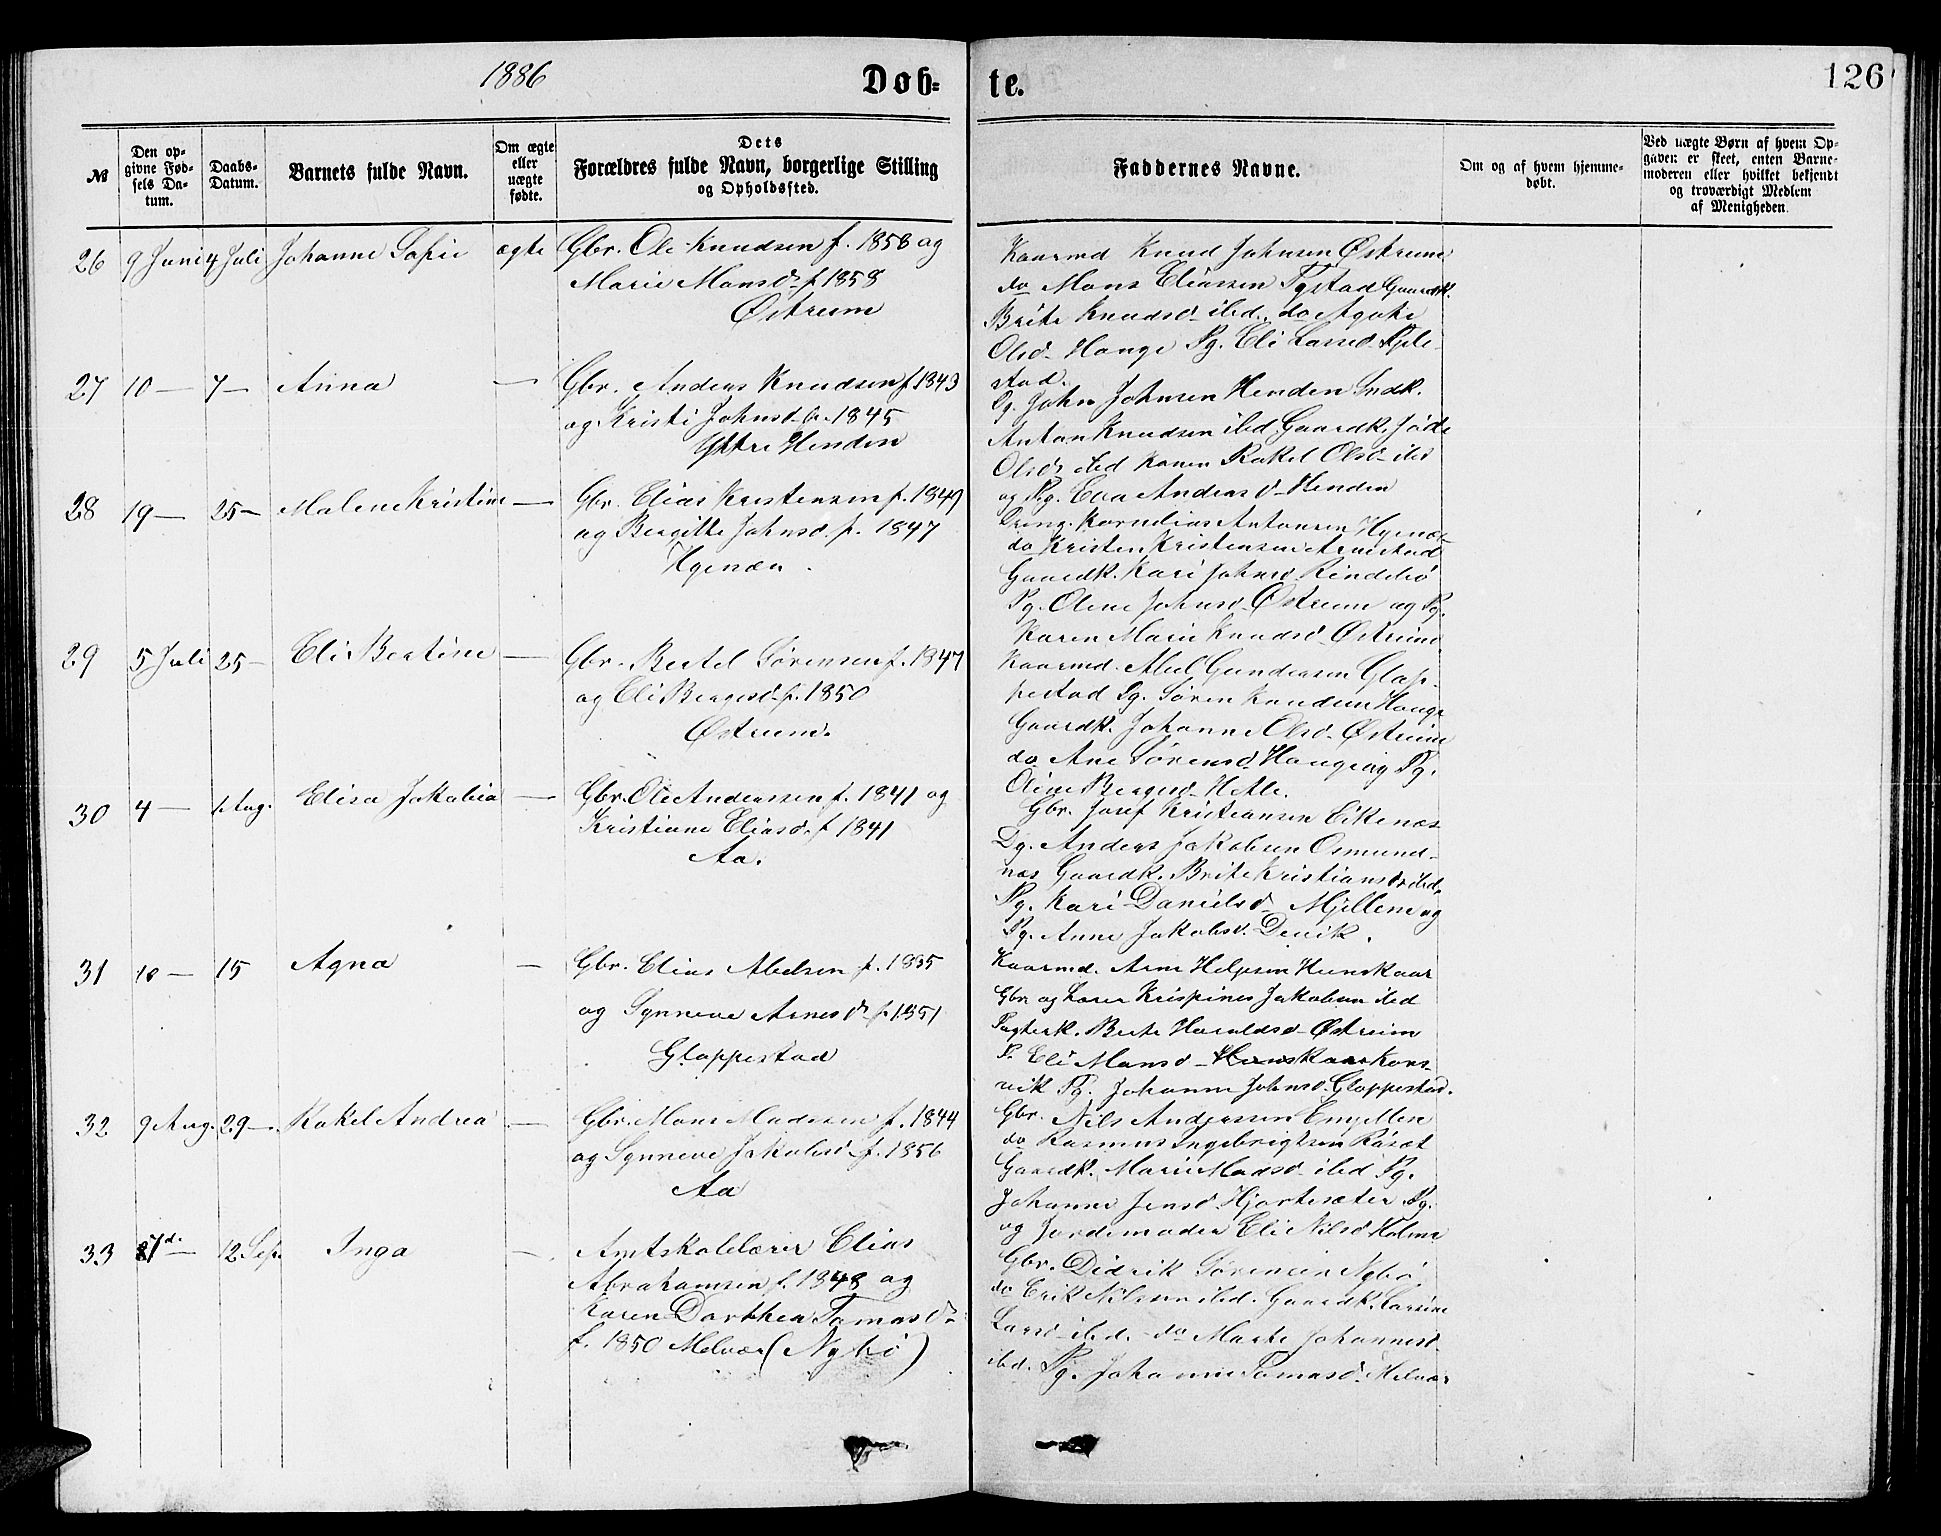 1886
Døb-
te.
126
№
Den op-
givne Fød-
sels Da-
tum.
Daabs-
Datum.
Barnets fulde Navn.
Om ægte
eller
uægte
fødte.
Dets
Forældres fulde Navn, borgerlige Stilling
og Opholdssted.
Faddernes Navne.
Om og af hvem hjemme-
døbt.
Ved uægte Børn af hvem Op-
gaven er skeet, enten Barne-
moderen eller hvilket bekjendt
og troværdigt Medlem
af Menigheden.
26 9 Juni 4 Juli Johanne Sofie ægte Gbr. Ole Knudsen f. 1858 og
Marie Monsd. f. 1858
Østreim
Kaarmd Knud Johnsen Østreim
do Mons Eliassen Gaardk.
Brite Knudsd. ibd. do Agate
Olsd. Hauge Pg. Eli Larsd.
stad.
27 10 — 7 — Anna — Gbr. Anders Knudsen f. 1843
og Kristi Johnsd. f. 1845
Yttre Henden
John Johnsen Henden Indk.
Anton Knudsen ibd Gaardk.
Olsd. ibd Konen Rakel Olsd. ibd
og Pg. Andersd. Henden
28 19 — 25 — Malene Kristine — Gbr. Elias Kristensen f. 1849
og Bergitte Johnsd. f. 1847
Hyenæs
Dreng. Kornelius Antonsen Hyenæs
do Kristen Kristensen Arnestad
Gaardk. Kari Johnsd. Rindebø
Pg. Oline Johnsd. Østreim og Pg.
Karen Marie Knudsd. Østreim
29 5 Juli 25 — Eli Bertine — Gbr. Bertel Sørensen f. 1847
og Eli Bergesd. f. 1850
Østreim.
Kaarmd. Abel Gundersen Glop-
pestad Søren Hauge
Gaardk. Johanne Olsd. Østreim
do Ane Sørensd. Hauge og Pg.
Oline Bergesd. Hetle.
30 4 — 1 Aug. Elisa Jakobia — Gbr. Ole Anderssen f. 1841 og
Kristiane Eliasd. f. 1841
Aa.
Gbr. Josef Kristiansen Eikenæs
Anders Jakobsen Osmund-
næs Gaardk. Brite Kristiansd. ibd.
Pg. Kari Danielsd. Mjellem og
Pg. Anne Jakobsd. Devik.
31 10 — 15 Agna — Gbr. Elias Abelsen f. 1835
og Synneve Arnesd. f. 1851
Gloppestad
Kaarmd. Arne Helgesen Hunskaar
Gbr og Lærer Krispinus Jakobsen ibd
Berte Haraldsd. Østreim
P. Eli Monsd. Hunskaar Kors-
vik Pg. Johanne Johnsd. Gloppestad.
32 9 Aug. 29 — Rakel Andrea — Gbr. Mons Madssen f. 1844
og Synneve Jakobsd. f. 1856
Aa
Gbr. Nils Anderssen
do Rasmus Ingebrigtsen
Gaardk. Marie Madsd. ibd Pg.
Johanne Jensd. Hjortesæter Pg.
og Jordemoder Eli Nilsd. Holme
33 — 12 Sep. Inga — Amtskolelærer Elias
Abrahamsen f. 1848 og
Karen Dorthea Tomasd.
f. 1850 Melvær (Nybø)
Gbr. Didrik Sørensen Nybø.
do Erik Nilssen ibd. Gaardk. Larsine
Larsd. ibd. do Marte Johannesd.
ibd. Pg. Johanne Tomasd. Melvær